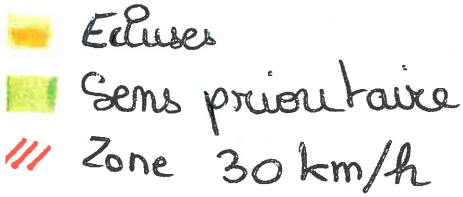 Ecluses
Sens prioritaire
Zone 30 km/h